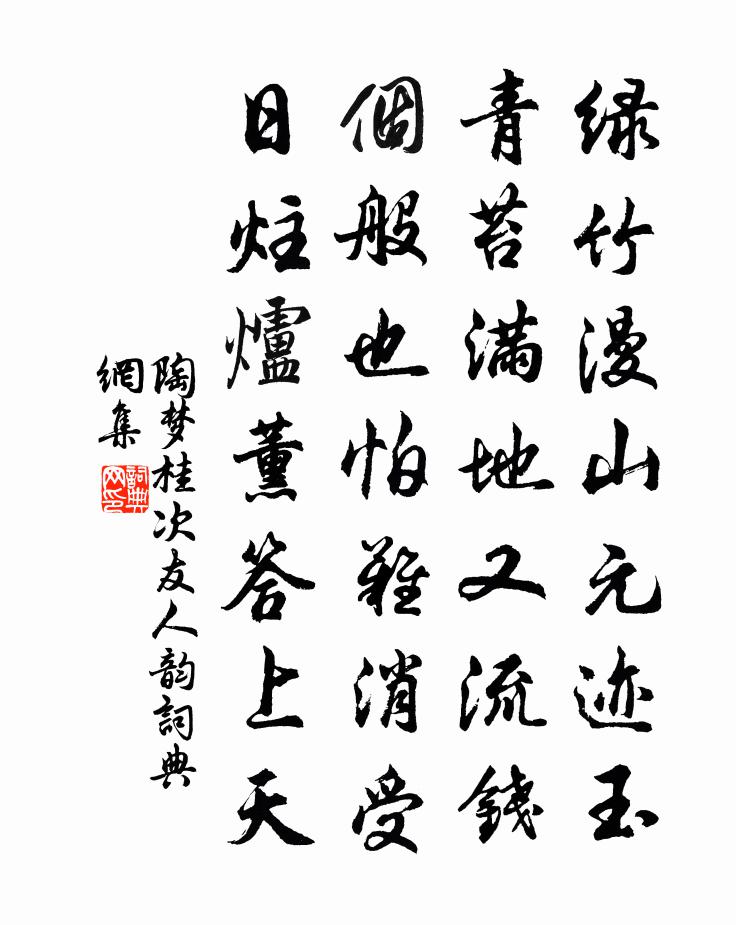 绿竹漫山元迹玉
青苔满地又流錢
個般也怕難消受
日炷爐薰答上天
陶梦桂次友人韵詞典
網集
詞典
网印